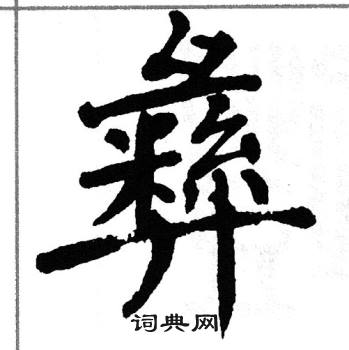 彝
词典网